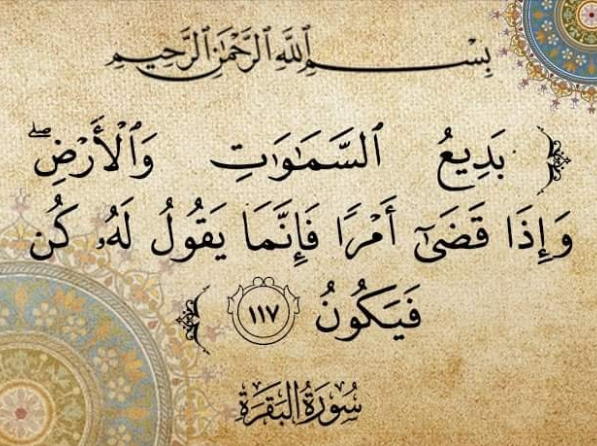 بِسْمِ ٱللَّهِ ٱلرَّحْمَٰنِ ٱلرَّحِيمِ
﴿ بَدِيعُ ٱلسَّمَٰوَٰتِ وَٱلْأَرْضِۖ
وَإِذَا قَضَىٰٓ أَمْرًا فَإِنَّمَا يَقُولُ لَهُۥ كُن
فَيَكُونُ ١١٧ ﴾
سُورَةُ البَقَرَةِ